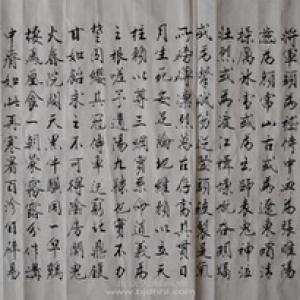 將軍頭為嵇侍中血為張睢陽
齒為顏常山舌或為遼東帽清
操厲冰雪或為出師表鬼神泣
壯烈或為渡江楫慷慨吞胡羯
或為擊賊笏逆豎頭破裂是氣
所磅礴凜烈萬古存當其貫日
月生死安足論地維賴以立天
柱賴以尊三綱實系命道義為
之根嗟予遘陽九隸也實不力
楚囚纓其冠傳車送窮北鼎鑊
甘如飴求之不可得陰房闐鬼
火春院閟天黑牛驥同一皂雞
棲鳳凰食一朝蒙霧露分作溝
中瘠如此再寒暑百沴自辟易